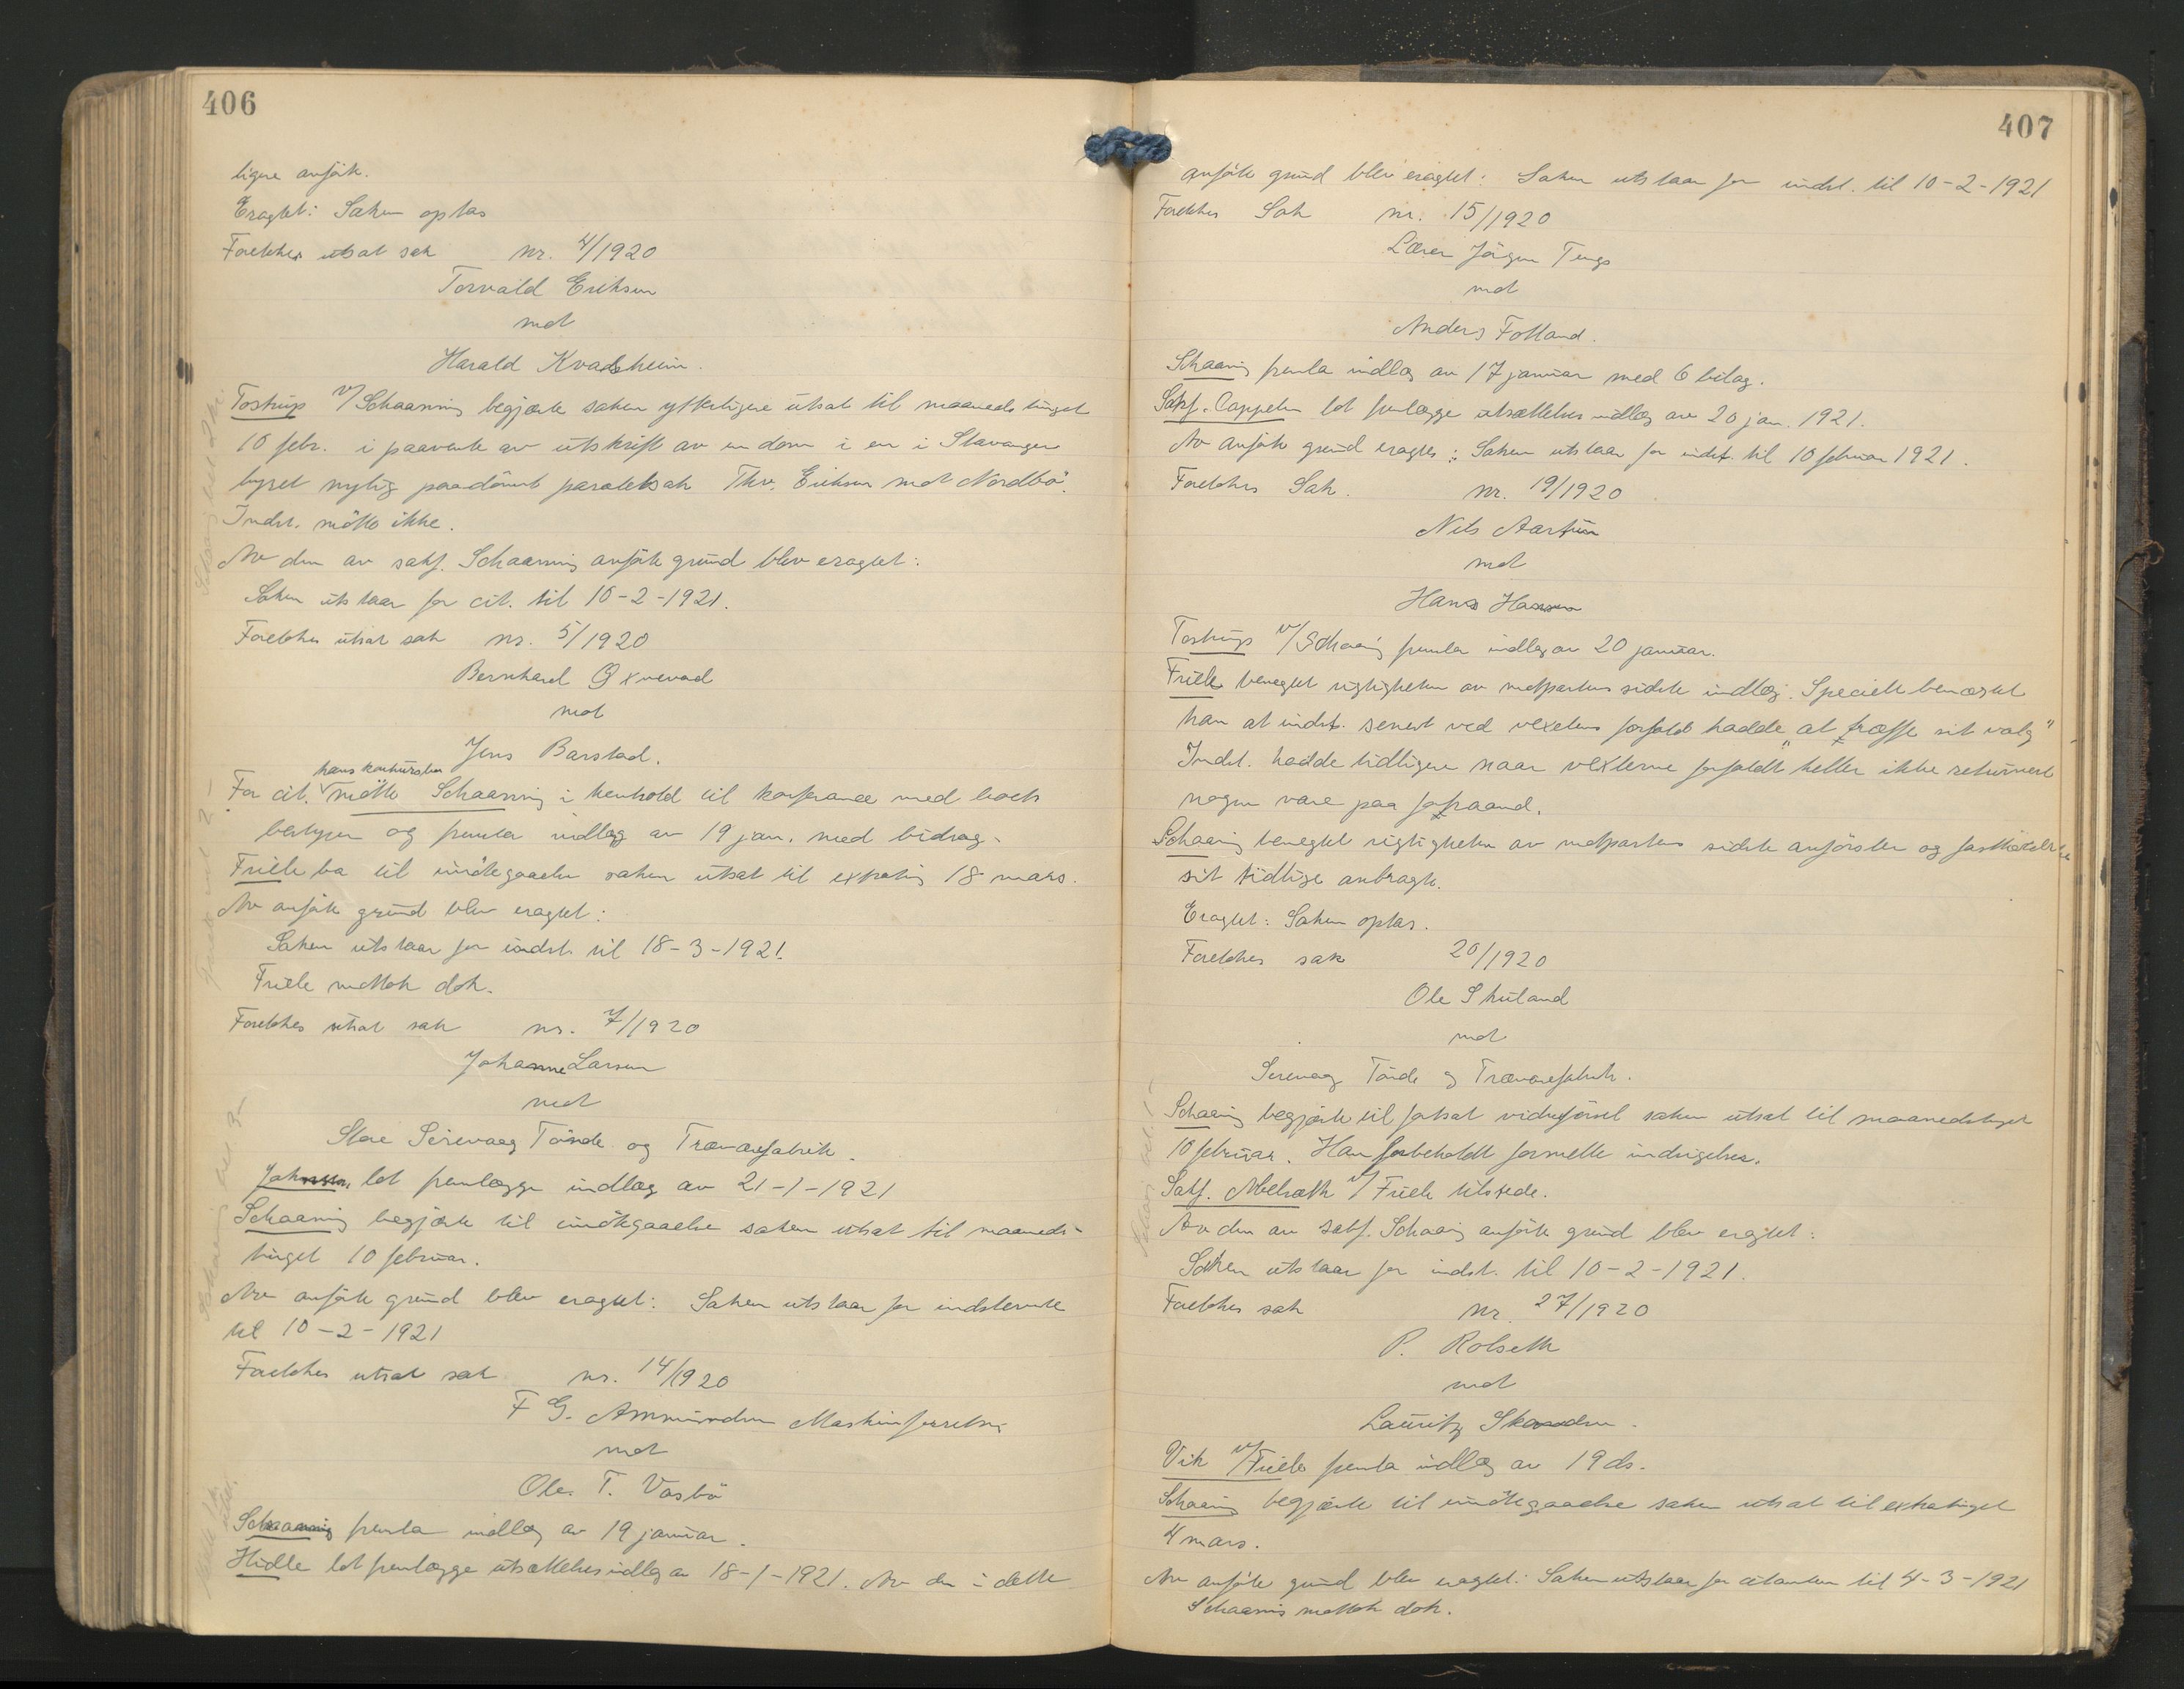 406
ligere anført.
Eragtet: Saken optas
Foretokes utsat sak nr. 4/1920
Torvald Eriksen
mot
Harald Kvadsheim.
Tostrup v/ Schaanning begjærte saken ytterligere utsat til maanedstinget
10 febr. i paavente av utskrift av en dom i en i Stavanger
byret nylig paadømt paralelsak Thv. Eriksen mot Nordbö.
Indst. mötte ikke.
Av den av sakf. Schaanning anförte grund blev eragtet:
Saken utstaar for cit. til 10-2-1921.
Foretokes utsat sak nr. 5/1920
Bernhard
mot
Jens Barstad.
hans konkursbo
For cit. mötte Schaanning i henhold til konferance med
bestyrer og fremla indlæg av 19 jan. med bidrag.
Friele ba til imötegaaelse saken utsat til extrating 18 mars.
Av anförte grund blev eragtet:
Saken utstaar for indst. til 18-3-1921.
Friele mottok dok.
Foretokes utsat sak nr. 7/1920
Johanne Larsen
mot
Sirevaag Tönde og Trævarefabrik.
Johnsen, lot fremlægge indlæg av 21-1-1921
Schaanning begjærte til imötegaaelse saken utsat til maaneds-
tinget 10 februar.
Av anförte grund blev eragtet: Saken utstaar for indstevnte
til 10-2-1921
Foretokes utsat sak nr. 14/1920
F G. Ammundsen Maskinforretni
mot
Ole. T. Vasbö
Schaanning fremla indlæg av 19 januar.
Hidle lot fremlægge utsættelsesindlæg av 18-1-1921. Av den i dette
407
anförte grund blev eragtet: Saken utstaar for indst. til 10-2-1921
Foretokes Sak nr. 15/1920
Lærer Jörgen Tengs
mot
Anders Folland.
Schaaning fremla indlæg av 17 januar med 6 bilag.
Sakf. Cappelen lot fremlægge utsættelses indlæg av 20 jan. 1921.
Av anförte grund eragtes: Saken utstaar for indst. til 10 februar 1921.
Foretokes Sak. nr. 19/1920
Nils Aartun
mot
Hans Hansen
Tostrup v/ Schaaning fremla indlæg av 20 januar.
Friele benegtet rigtigheten av motpartens sidste indlæg. Specielt benægtet
han at indst. senest ved vexelens forfald hadde „at træffe sit valg"
Indst. hadde tidligere naar vexlerne forfaldt heller ikke returnert
nogen vare paa forhaand.
Schaaning benegtet rigtigheten av motpartens sidste anförsler og fastholdt
sit tidlige anbragte.
Eragtet: Saken optas.
Foretokes sak 20/1920
Ole Skuland
mot
Sirevaag Tönde og Trævarefabrik.
Schaaning begjærte til fortsat vidneförsel saken utsat til maanedstinget
10 februar. Han forbeholdt formelle indsigelser.
Sakf. Abelseth v/ Friele tilstede.
Av den av sakf. Schaaning anförte grund blev eragtet:
Saken utstaar for indst. til 10-2-1921.
Foretokes sak nr. 27/1920
P. Rolseth
mot
Lauritz
Vik v/ Friele fremla indlæg av 19 ds.
Schaaning begjærte til imötegaaelse saken utsat til extratinget
4 mars.
Av anförte grund blev eragtet: Saken utstaar for citanten til 4-3-1921
Schaanning mottok dok.